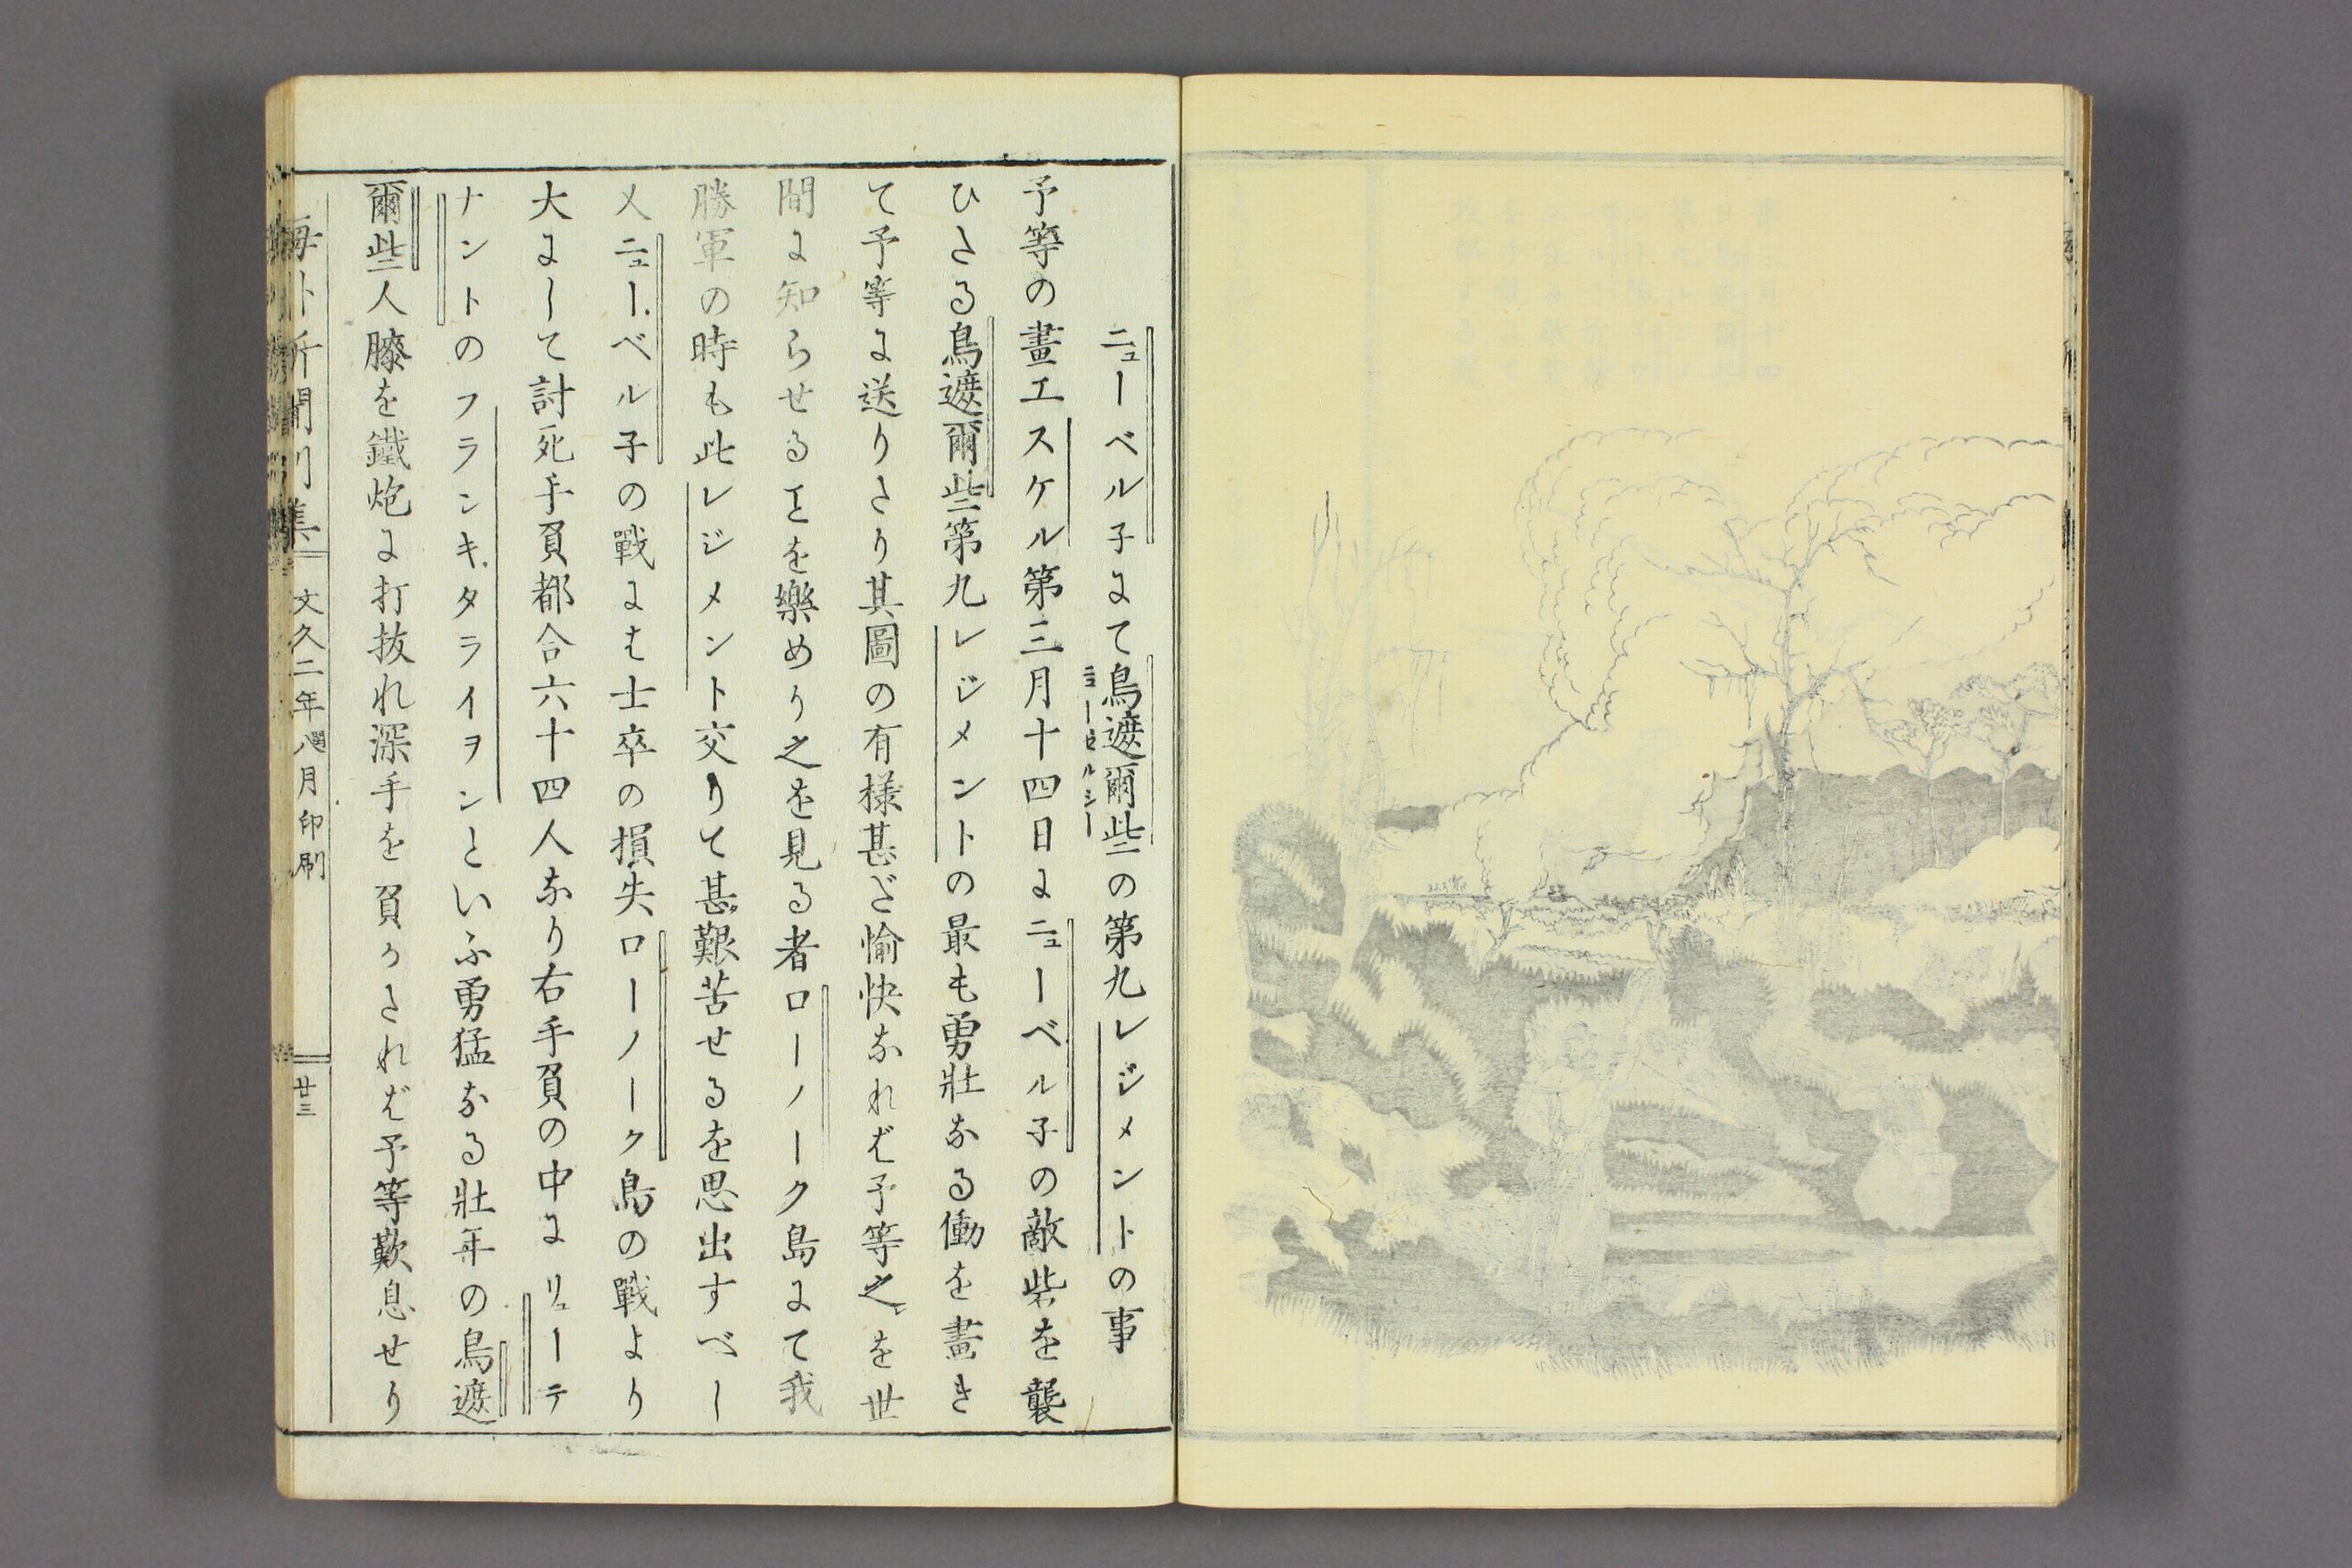 ニューベル子にて鳥遮爾些の第九レジメントの事
ニューゼルシー
予等の畫工スケル第三月十四日にニューベル子の敵砦を襲
ひたる鳥遮爾些第九レジメントの最も勇壯なる働を畫き
て予等に送りたり其圖の有様甚だ愉快なれば予等之を世
間に知らせるヿを樂めり之を見る者ローノーク島にて我
勝軍の時も此レジメント交りて甚艱苦せるを思出すべし
又ニューベル子の戰には士卒の損失ローノーク島の戰より
大にして討死手負都合六十四人なり右手負の中にリューテ
ナントのフランキタライヲンといふ勇猛なる壯年の鳥遮
爾些人膝を鐵炮に打抜れ深手を負うたれば予等歎息せり
海外新聞別集
文久二年閏八月印刷
廿三